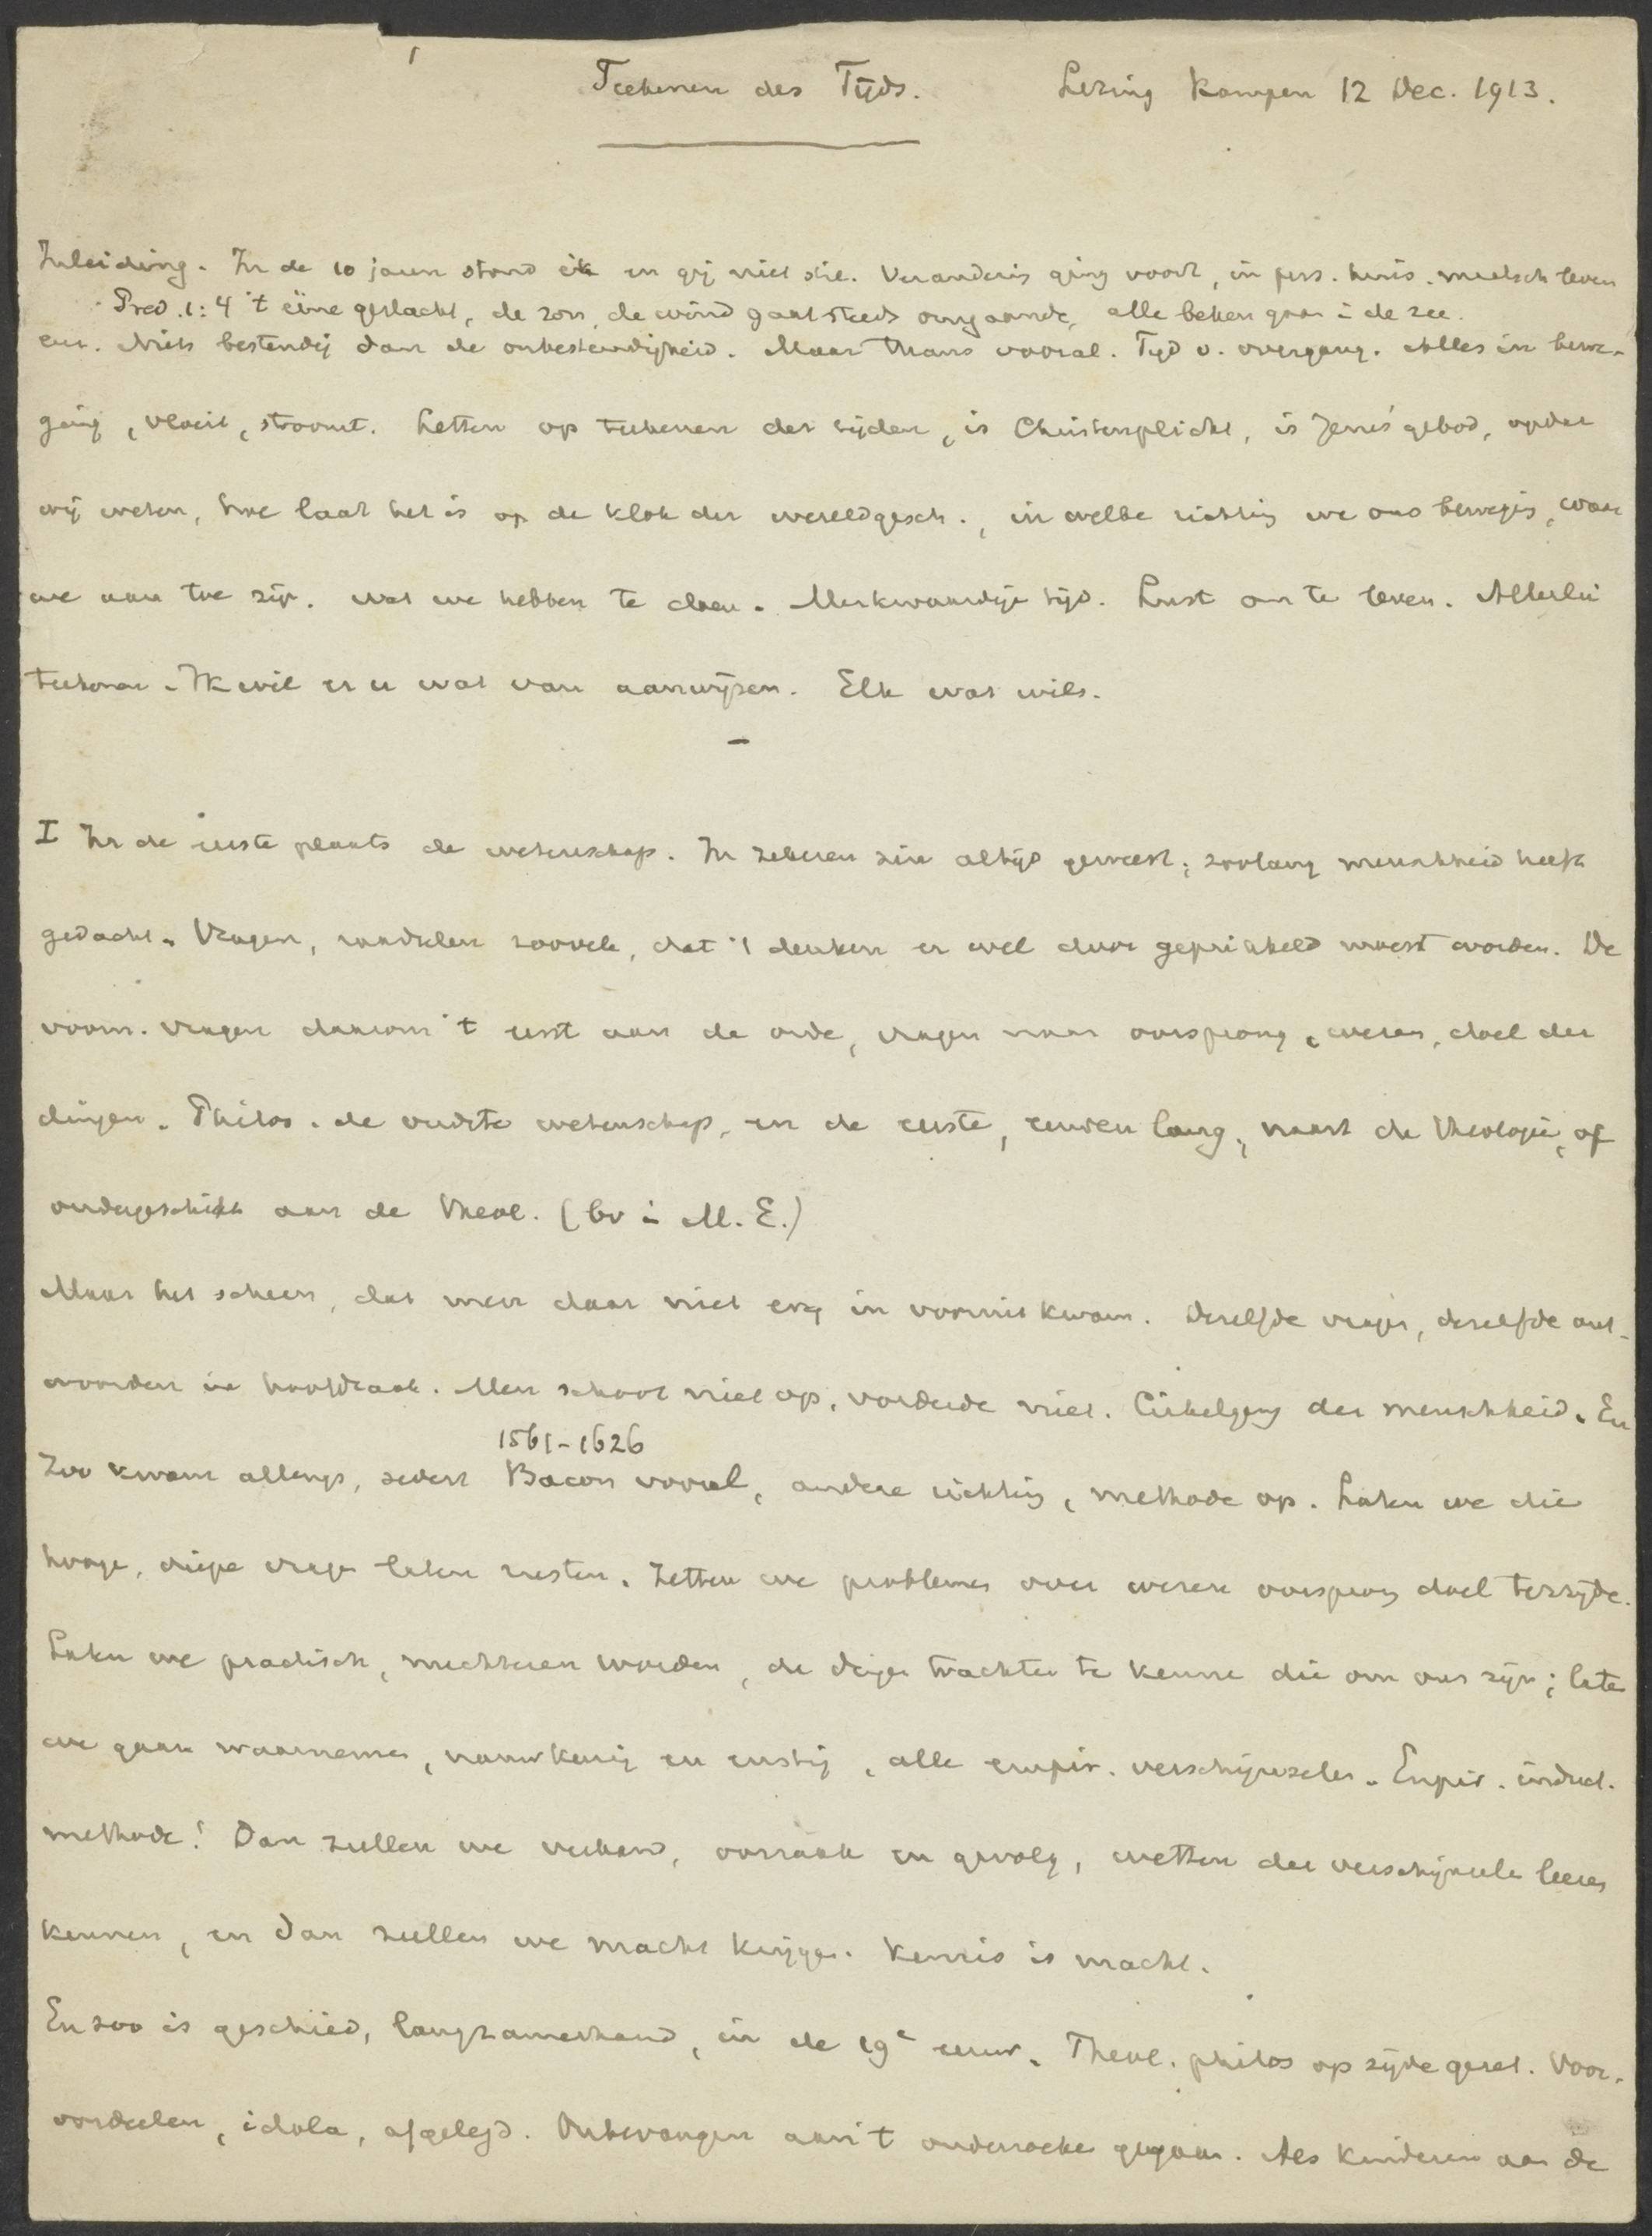 1
Teekenen des Tijds. Lezing Kampen 12 Dec. 1913.
Inleiding. In de 10 jaren stond ik en gij niet stil. Verandering ging voort, in pers. huis. maatsch leven
Pred. 1:4 't eene geslacht, de zon, de wind gaat steeds omgaande, alle beken gaan i de zee.
enz. Niets bestendig dan de onbestendigheid. Maar thans vooral. Tijd v. overgang. Alles in bewe-
ging, vloeit, stroomt. Letten op teekenen der tijden, is Christenplicht, is Jezus' gebod, opdat
wij weten, hoe laat het is op de klok der wereldgesch., in welke richting we ons bewegen, waar
we aan toe zijn. wat we hebben te doen. Merkwaardige tijd. Lust om te leven. Allerlei
teekenen. Ik wil er u wat van aanwijzen. Elk wat wils.
I In de eerste plaats de wetenschap. In zekeren zin altijd geweest, zoolang menschheid heeft
gedacht. Vragen, raadselen zoovele, dat 't denken er wel door geprikkeld moest worden. De
voorn. vragen daarom 't eerst aan de orde, vragen naar oorsprong, wezen, doel der
dingen. Philos. de oudste wetenschap, en de eerste, eeuwen lang, naast de theologie, of
ondergeschikt aan de theol. (bv i M.E.)
Maar het scheen, dat men daar niet erg in vooruit kwam. Dezelfde vragen, dezelfde ant-
woorden in hoofdzaak. Men schoot niet op, vorderde niet. Cirkelgang der menschheid. En
1561-1626
zoo kwam allengs, sedert Bacon vooral, andere richting, methode op. Laten we die
hooge, diepe vragen laten rusten. Zetten we problemen over wezen oorsprong doel terzijde.
Laten we practisch, nuchteren worden, de dingen trachten te kennen die om ons zijn; laten
we gaan waarnemen, nauwkeurig en rustig, alle empir. verschijnselen. Empir. induct.
methode! Dan zullen we verband, oorzaak en gevolg, wetten der verschijnselen leeren
kennen, en dan zullen we macht krijgen. Kennis is macht.
En zoo is geschied, langzamerhand, in de 19e eeuw. Theol. philos op zijde gezet. Voor-
oordeelen, idola, afgelegd. Onbevangen aan 't onderzoeken gegaan. Als kinderen aan de